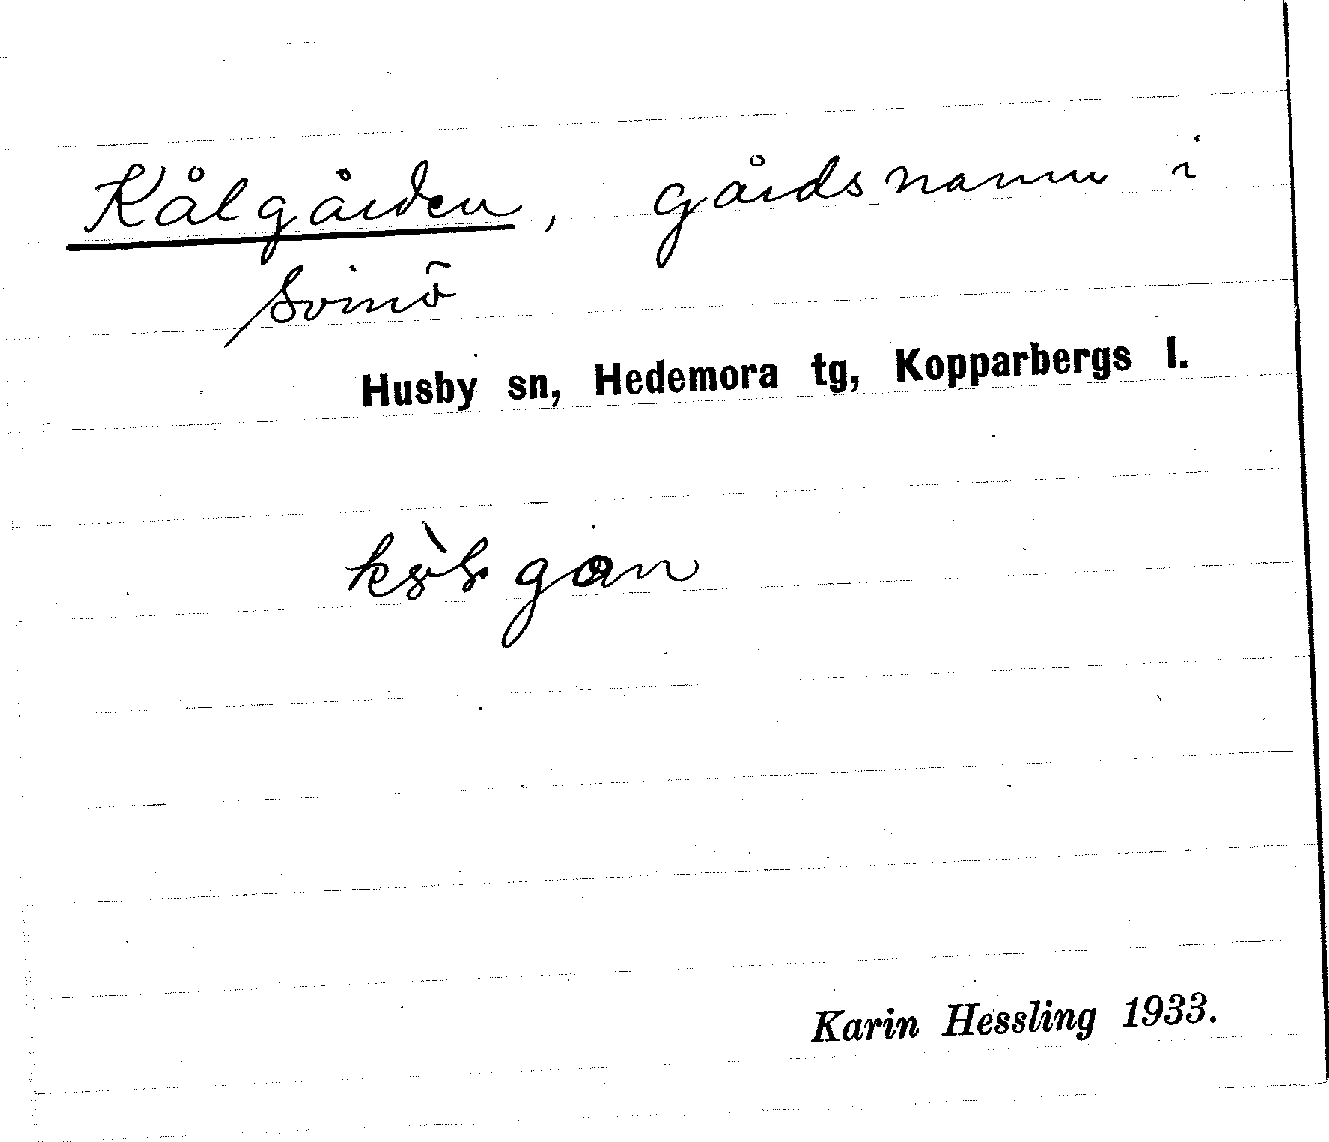 Kålgården, gårdsnamn i
Svinö
Husby sn, Hedemora tg, Kopparbergs l.
Karin Hessling 1933.